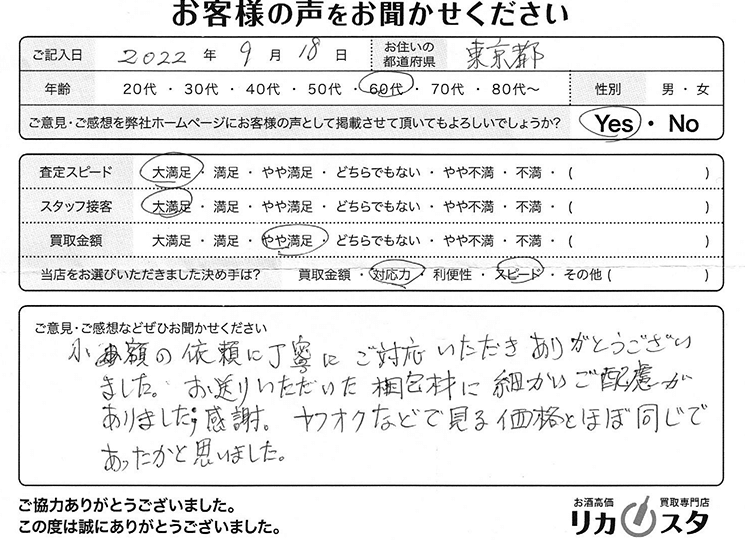 お客様の声をお聞かせください
ご記入日 2022 年 9 月 18 日 お住いの都道府県 東京都
年齢 20代 ・ 30代 ・ 40代 ・ 50代 ・ 60代 ・ 70代 ・ 80代〜 性別 男 ・ 女
ご意見・ご感想を弊社ホームページにお客様の声として掲載させて頂いてもよろしいでしょうか? Yes ・ No
査定スピード 大満足 ・ 満足 ・ やや満足 ・ どちらでもない ・ やや不満 ・ 不満 ・ ( )
スタッフ接客 大満足 ・ 満足 ・ やや満足 ・ どちらでもない ・ やや不満 ・ 不満 ・ ( )
買取金額 大満足 ・ 満足 ・ やや満足 ・ どちらでもない ・ やや不満 ・ 不満 ・ ( )
当店をお選びいただきました決め手は? 買取金額 ・ 対応力 ・ 利便性 ・ スピード ・ その他 ( )
ご意見・ご感想などぜひお聞かせください
小額の依頼に丁寧にご対応いただきありがとうござい
ました。お送りいただいた梱包材に細かいご配慮が
ありました;感謝。ヤフオクなどで見る価格とほぼ同じで
あったかと思いました。
ご協力ありがとうございました。
この度は誠にありがとうございました。
お酒高価 買取専門店
リカスタ